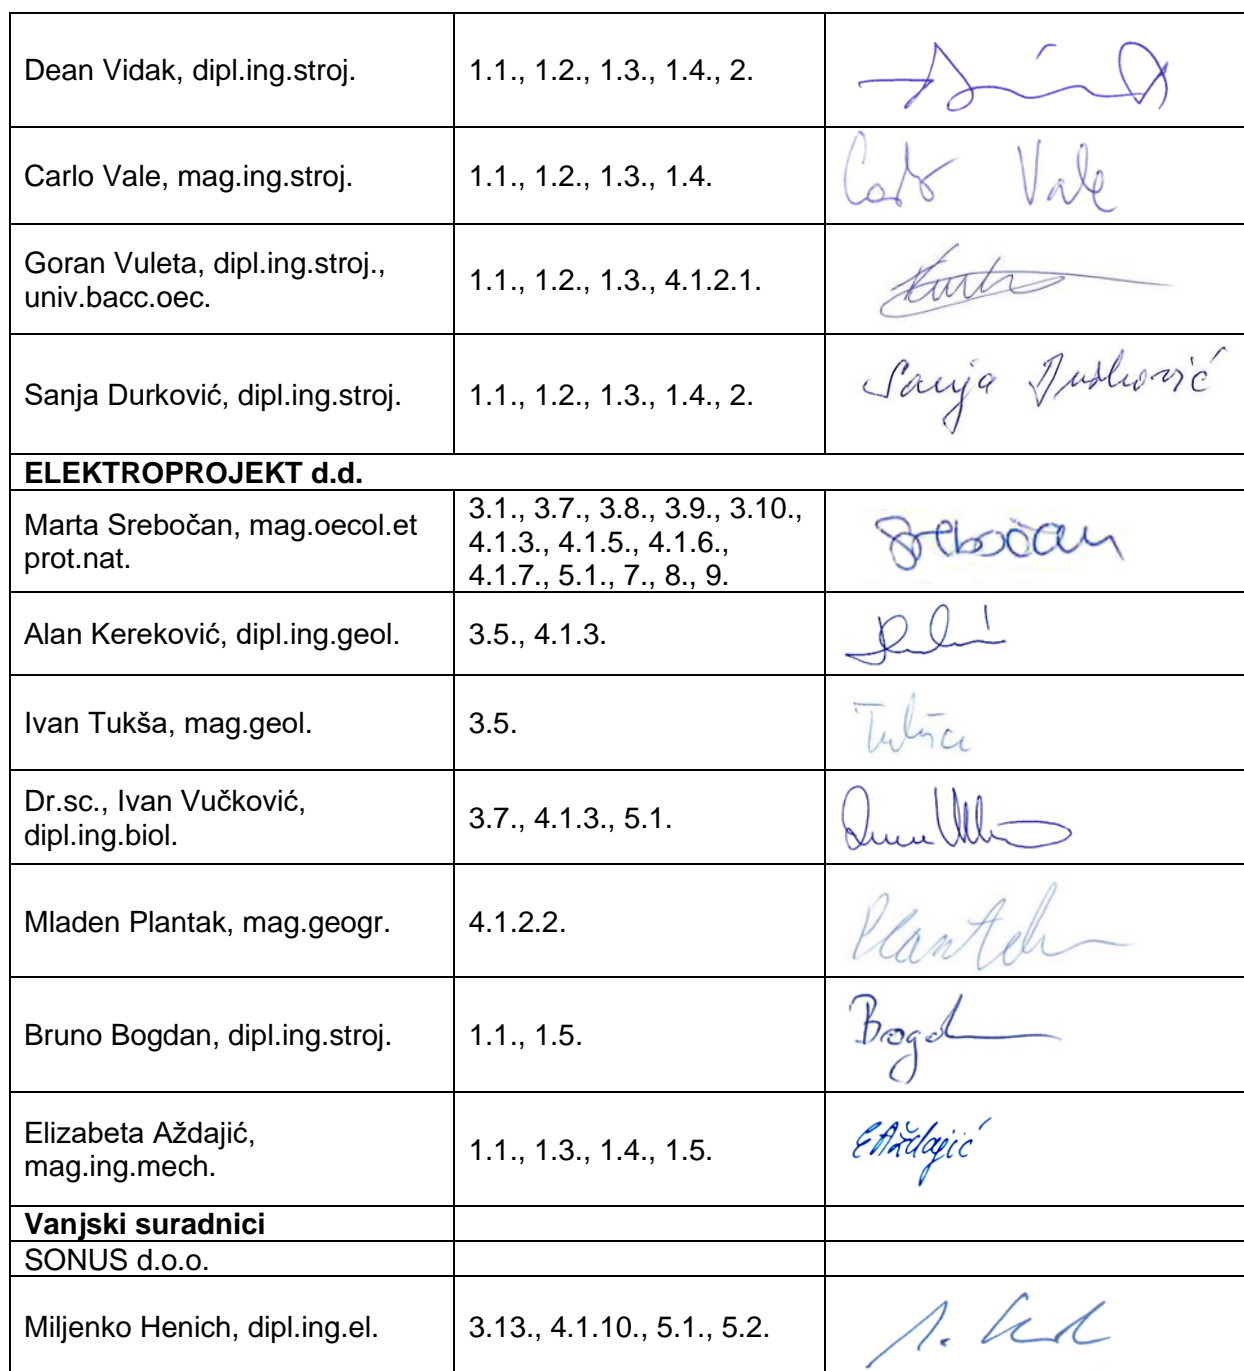 Dean Vidak, dipl.ing.stroj. 1.1., 1.2., 1.3., 1.4., 2.
Carlo Vale, mag.ing.stroj. 1.1., 1.2., 1.3., 1.4. Carlo Vale
Goran Vuleta, dipl.ing.stroj.,
univ.bacc.oec. 1.1., 1.2., 1.3., 4.1.2.1.
Sanja Durković, dipl.ing.stroj. 1.1., 1.2., 1.3., 1.4., 2. Sanja Durković
ELEKTROPROJEKT d.d.
Marta Srebočan, mag.oecol.et
prot.nat.
3.1., 3.7., 3.8., 3.9., 3.10.,
4.1.3., 4.1.5., 4.1.6.,
4.1.7., 5.1., 7., 8., 9.
Srebočan
Alan Kereković, dipl.ing.geol. 3.5., 4.1.3.
Ivan Tukša, mag.geol. 3.5. Tukša
Dr.sc., Ivan Vučković,
dipl.ing.biol. 3.7., 4.1.3., 5.1.
Mladen Plantak, mag.geogr. 4.1.2.2. Plantak
Bruno Bogdan, dipl.ing.stroj. 1.1., 1.5. Bogd
Elizabeta Aždajić,
mag.ing.mech. 1.1., 1.3., 1.4., 1.5. EAždajić
Vanjski suradnici
SONUS d.o.o.
Miljenko Henich, dipl.ing.el. 3.13., 4.1.10., 5.1., 5.2.